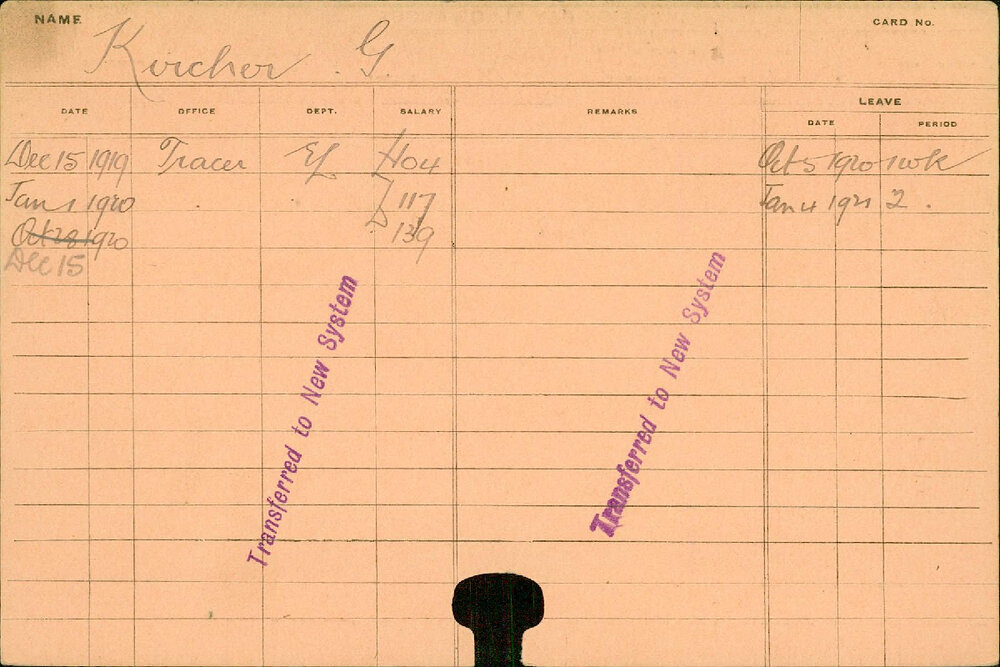 NAME
Kircher G.
CARD No.
DATE OFFICE DEPT. SALARY REMARKS LEAVE
DATE PERIOD
Dec 15 1919 Tracer 104 Oct 5 1920 1 wk
Jan 1 1920 117 Jan 4 1921 2.
Oct 28 1920 139
Dec 15
Transferred to New System
Transferred to New System